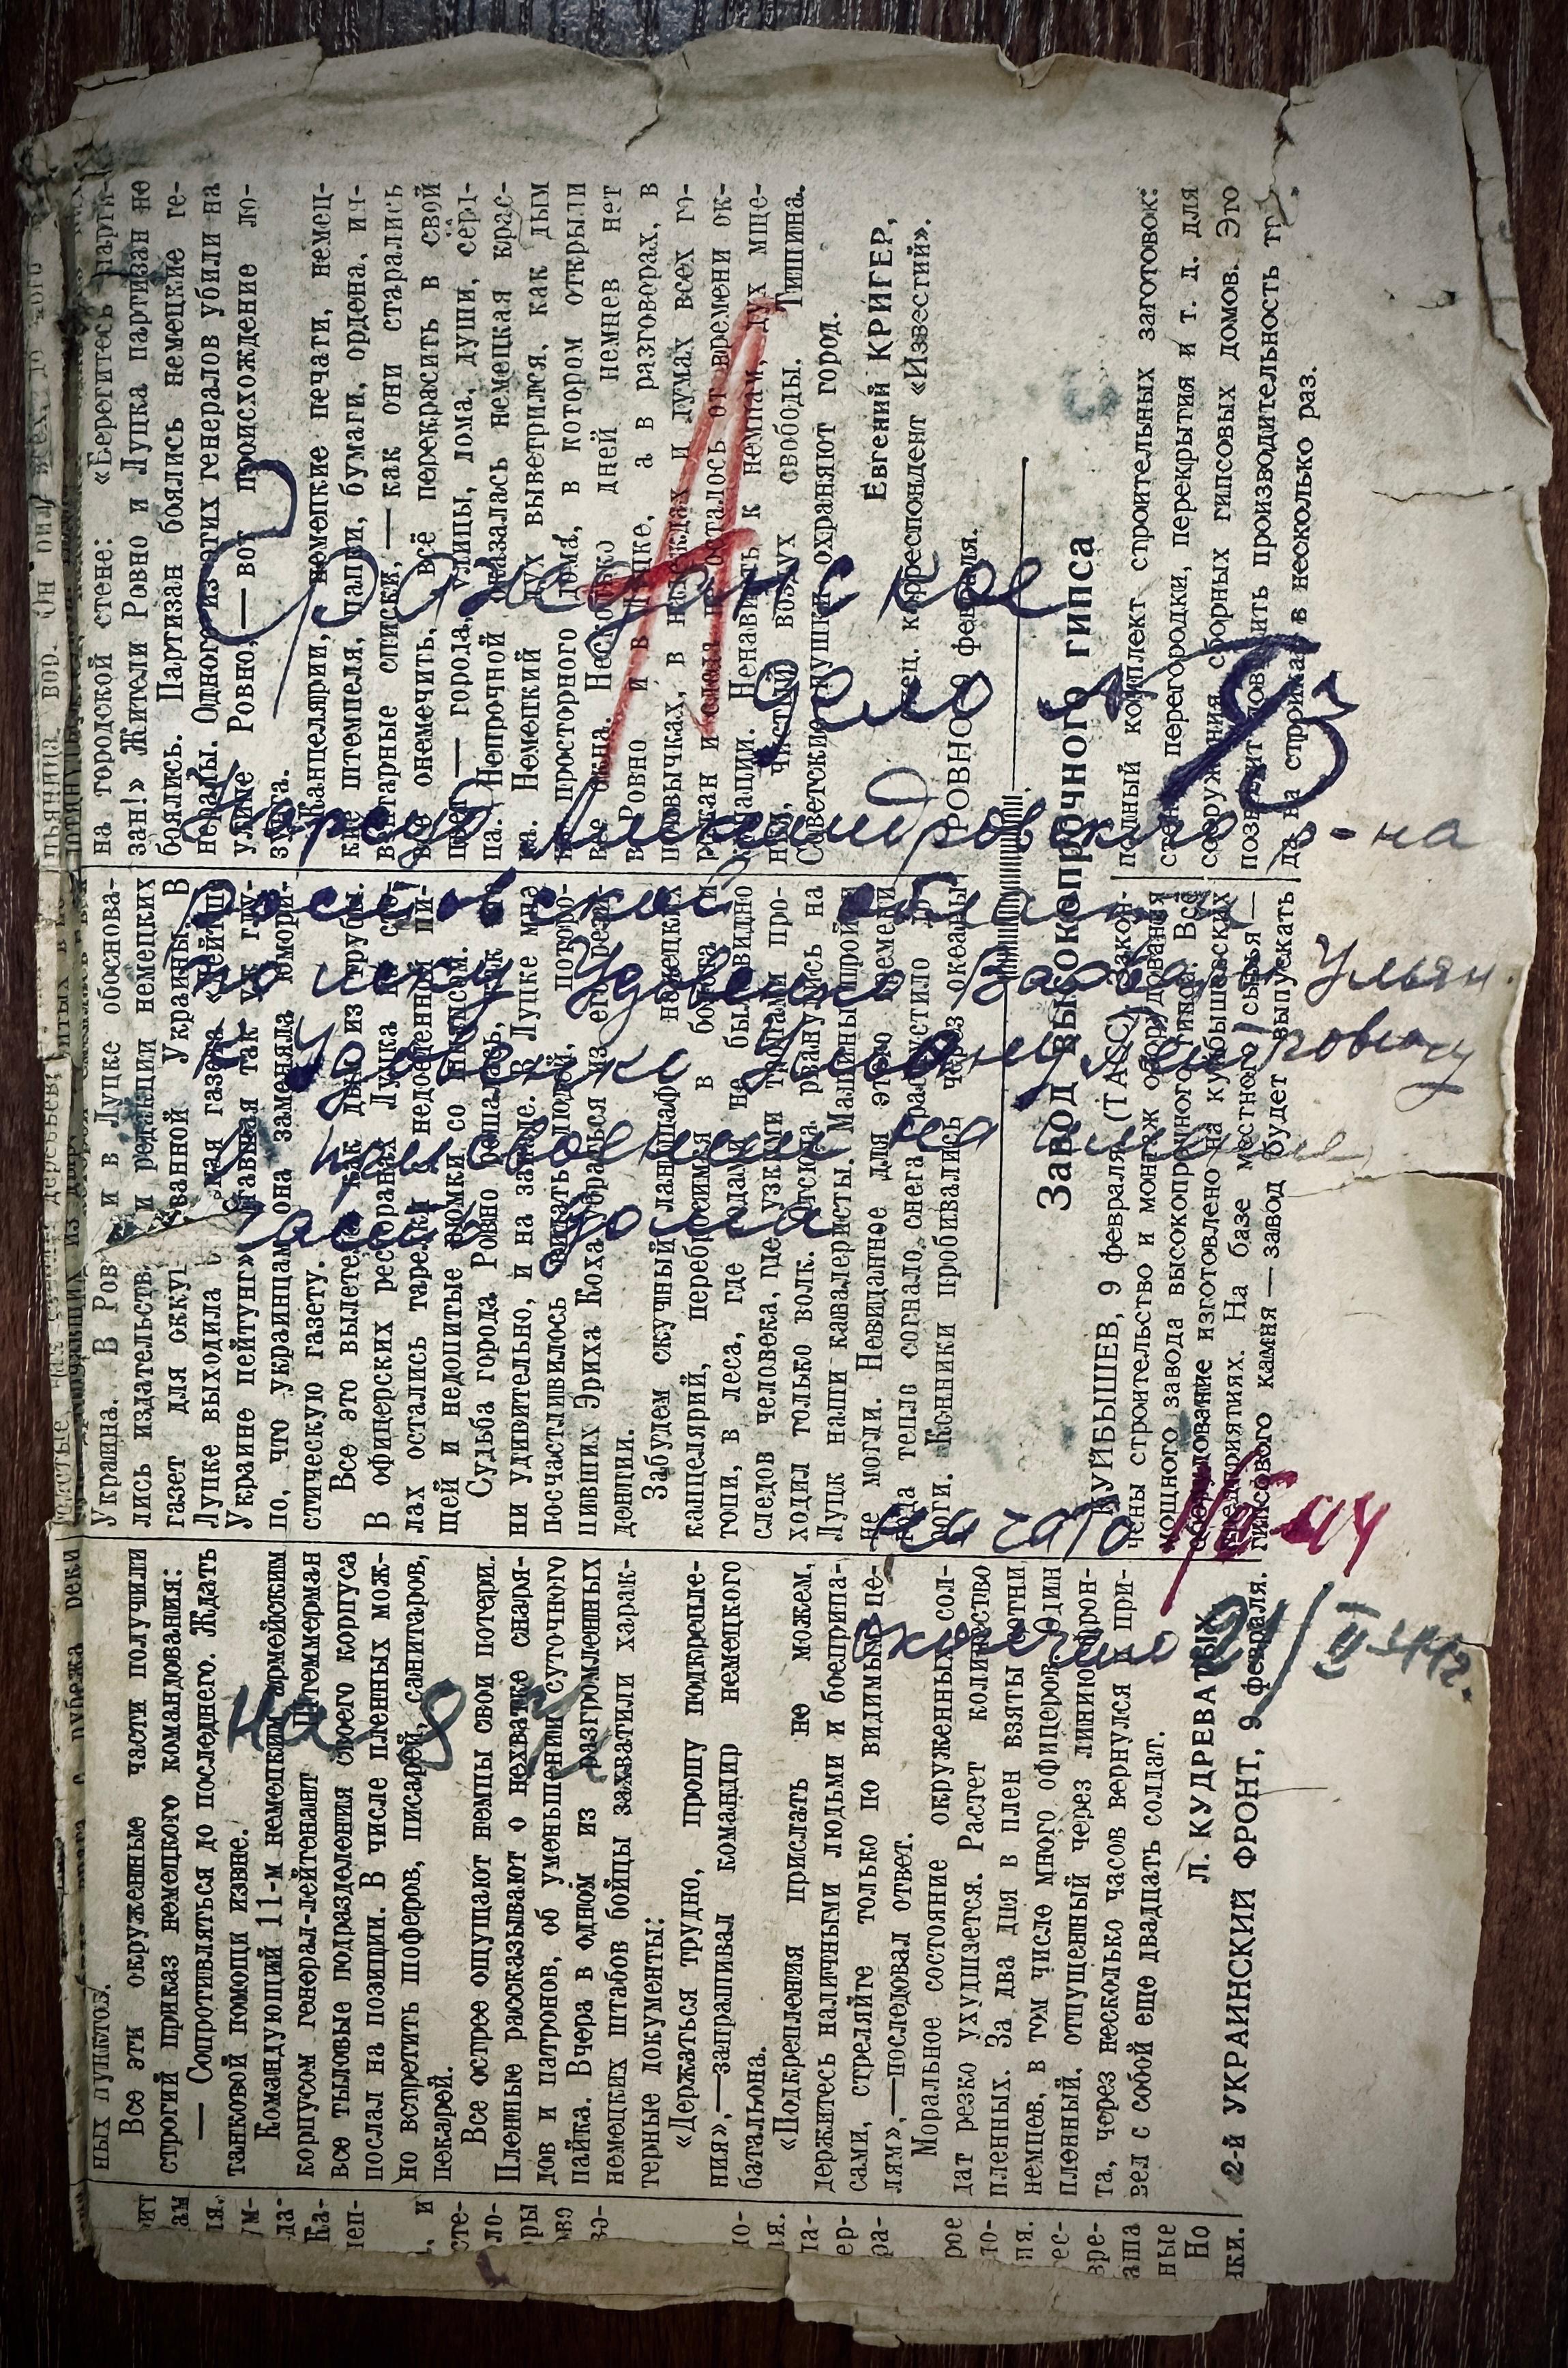 Гражданское
дело №
Александровского р-на
Ростовской области
По иску Удовенко Ульян.
к Удовенко
часть дома
начато
окончено 21/II-44г.
на 8
ных пунктов.
Все эти окруженные части получили
строгий приказ немецкого командования:
— Сопротивляться до последнего. Ждать
танковой помощи извне.
Командующий 11-м немецким армейским
корпусом генерал-лейтенант Штеммерман
все тыловые подразделения своего корпуса
послал на позиции. В числе пленных мож-
но встретить шоферов, писарей, санитаров,
пекарей.
Все острее ощущают немцы свои потери.
Пленные рассказывают о нехватке снаря-
дов и патронов, об уменьшении суточного
пайка. Вчера в одном из разгромленных
немецких штабов бойцы захватили харак-
терные документы:
«Держаться трудно, прошу подкрепле-
ния»,—запрашивал командир немецкого
батальона.
«Подкрепления прислать не можем,
держитесь наличными людьми и боеприпа-
сами, стреляйте только по видимым це-
лям»,—последовал ответ.
Моральное состояние окруженных сол-
дат резко ухудшается. Растет количество
пленных. За два дня в плен взяты сотни
немцев, в том числе много офицеров. Один
пленный, отпущенный через линию фрон-
та, через несколько часов вернулся и при-
вел с собой еще двадцать солдат.
Л. КУДРЕВАТЫХ.
2-й УКРАИНСКИЙ ФРОНТ, 9 февраля.
Украина. В Ров и в Луцке обоснова-
лись издательств и редакции немецких
газет для оккуп ванной Украины. В
Луцке выходила кая газета «Дейтше
Украине цейтунг» главная так уж глу-
по, что украинцам она заменяла юмори-
стическую газету.
Все это вылетело как дым из трубы.
В офицерских ресторанах Луцка на сто-
лах остались тарелки с недоеденной пи-
щей и недопитые рюмки со шнапсом.
Судьба города Ровно решалась, как это
ни удивительно, и на западе. В Луцке мне
посчастливилось видать людей, поторо-
пивших Эриха Коха убраться из его рези-
денции.
Забудем скучный ландшафт немецких
канцелярий, перебросимся в болота и
топи, в леса, где годами не было видно
следов человека, где узкими тропами про-
ходил только волк. Отсюда рванулись на
Луцк наши кавалеристы. Машины пройти
не могли. Невиданное для этого времени
года тепло согнало снега, распустило до-
роги. Конники пробивались через океаны
на городской стене: «Берегитесь парти-
зан!» Жители Ровно и Луцка партизан не
боялись. Партизан боялись немецкие ге-
нералы. Одного из этих генералов убили на
улице Ровно, — вот происхождение ло-
зунга.
Канцелярии, немецкие печати, немец-
кие штемпеля, папки, бумаги, ордена, ин-
вентарные списки, — как они старались
все онемечить, всё перекрасить в свой
цвет — города, улицы, дома, души, серд-
ца. Непрочной оказалась немецкая крас-
ка. Немецкий дух выветрился, как дым
из просторного дома, в котором открыли
все окна. Несколько дней немцев нет
в Ровно и в Луцке, а в разговорах, в
привычках, в надеждах и думах всех го-
рожан и следа не осталось от времени ок-
купации. Ненависть к немцам, дух мще-
ния, чистый воздух свободы. Тишина.
Советские пушки охраняют город.
Евгений КРИГЕР,
спец. корреспондент «Известий».
РОВНО, 9 февраля.
Завод высокопрочного гипса
КУЙБЫШЕВ, 9 февраля. (ТАСС). Закон-
чены строительство и монтаж оборудования
мощного завода высокопрочного гипса. Все
оборудование изготовлено на куйбышевских
предприятиях. На базе местного сырья—
гипсового камня — завод будет выпускать
полный комплект строительных заготовок:
стены, перегородки, перекрытия и т. д. для
сооружения сборных гипсовых домов. Это
позволит повысить производительность тр
да на стройках в несколько раз.